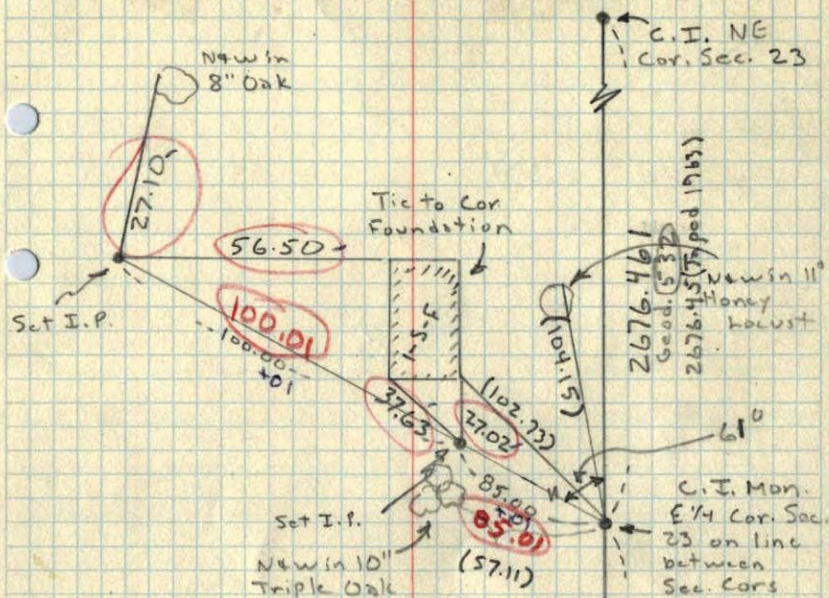 C.I. NE
Cor. Sec. 23
N&W in
8" Oak
27.10
Tie to Cor.
Foundation
56.50
Set I.P.
100.01
100.00
+01
1-S-F
37.63
27.02
(102.73)
(104.15)
2676.461
Geod. (532)
2676.45 (Topod 1963)
N&W in 11"
Honey
Locust
61°
85.00
+01
85.01
(57.11)
Set I.P.
N&W in 10"
Triple Oak
C.I. Mon.
E 1/4 Cor. Sec.
23 on line
between
Sec. Cors